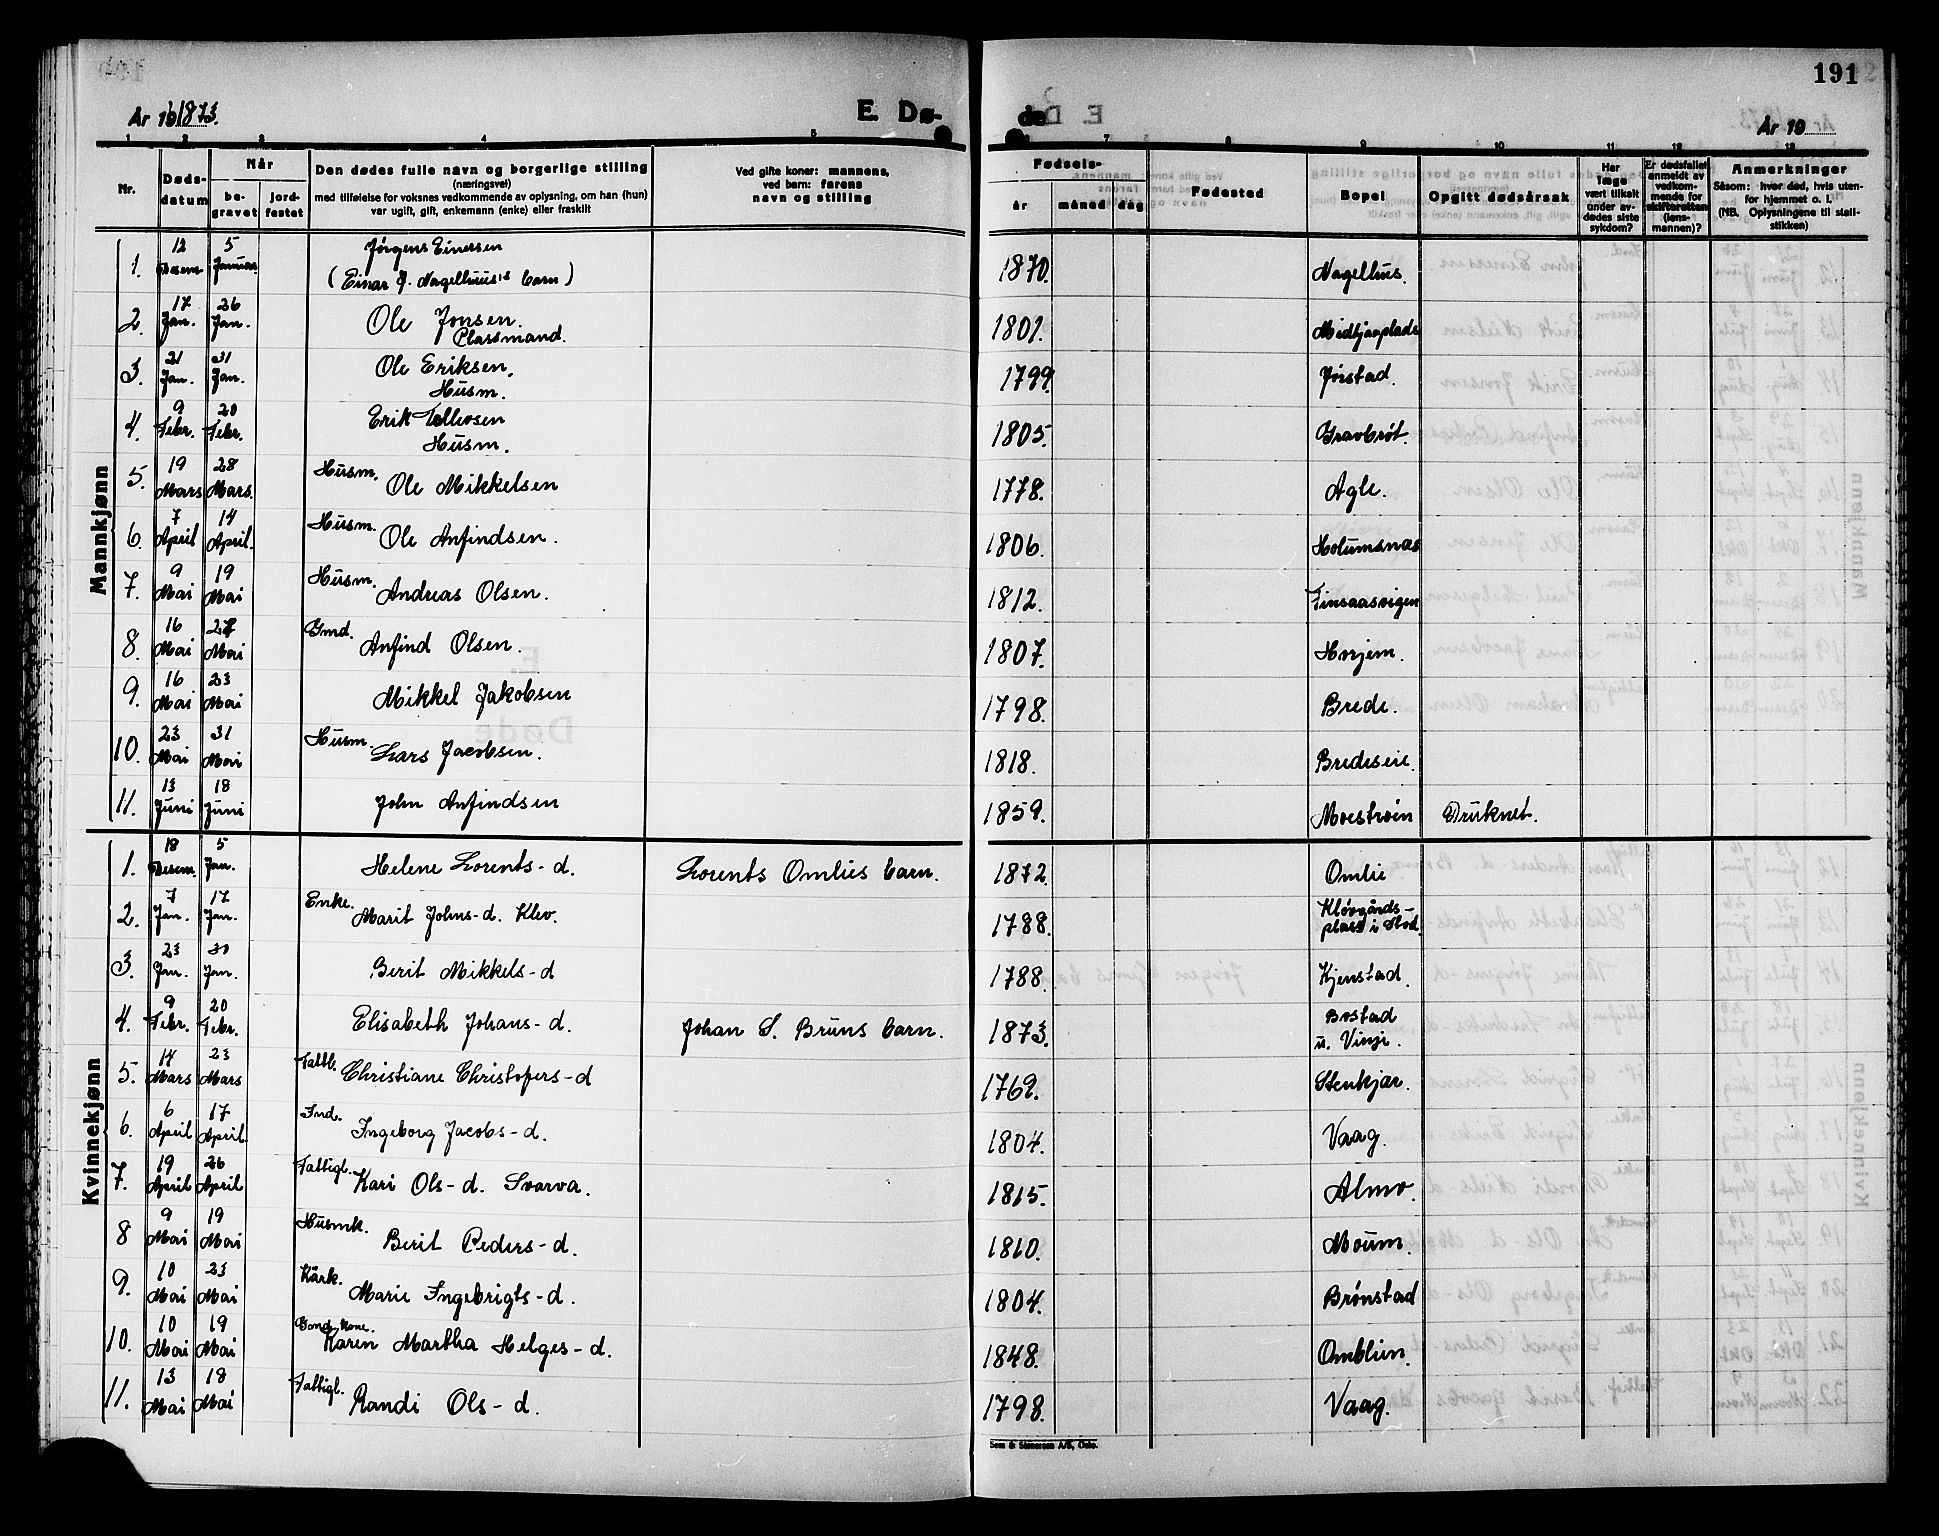 191
År 1873.
E. Dø-
de
År 19
1 2 3 4 5
7 8 9 10 11 12 13
Nr.
Døds-
datum
Når
be-
gravet
jord-
festet
Den dødes fulle navn og borgerlige stilling
(næringsvei)
med tilføielse for voksnes vedkommende av oplysning, om han (hun)
var ugift, gift, enkemann (enke) eller fraskilt
Ved gifte koner: mannens,
ved barn: farens
navn og stilling
Fødsels-
år måned dag
Fødested
Bopel
Opgitt dødsårsak
Har
læge
vært tilkalt
under av-
dødes siste
sykdom?
Er dødsfallet
anmeldt av
vedkom-
mende for
skifteretten
(lens-
mannen)?
Anmerkninger
Såsom: hvor død, hvis uten-
for hjemmet o. l.
(NB. Oplysningene til stati-
stikken)
Mannkjønn
1. 12 Desem. 5 Januar Jørgens Einersen 1870. Nagelhus.
(Einar J. Nagelhuus's barn)
2. 17 Jan. 26 Jan. Ole Jonsen. 1801. Midtjarplads
Plassmand.
3. 21 Jan. 31 Jan. Ole Eriksen. 1799. Jørstad.
Husm.
4. 9 Febr. 20 Febr. Erik Tollevsen 1805. Gravbrøt.
Husm.
5. 19 Mars 28 Mars. Husm. Ole Mikkelsen 1778. Agle.
6. 7 April 14 April. Husm. Ole Anfindsen. 1806. Holumsnas
7. 9 Mai 19 Mai Husm. Andreas Olsen. 1812. Finsaasvigen
8. 16 Mai 27 Mai Gmd. Anfind Olsen. 1807. Horjem.
9. 16 Mai 23 Mai Mikkel Jakobsen 1798. Brede.
10. 23 Mai 31 Mai Husm. Lars Jacobsen. 1818. Bredeseie.
11. 13 Juni 18 Juni John Anfindsen 1859. Moestrøen Druknet.
Kvinnekjønn
1. 18 Desem. 5 Jan. Helene Lorents-d. Lorents Omlies barn. 1872. Omlie
2. 7 Jan. 17 Jan. Enke. Marit Johns-d. Klev. 1788. Kløvgårds-
plass i Stod.
3. 23 Jan. 30 Jan. Berit Mikkels-d 1788. Kjenstad.
4. 9 Febr. 20 Febr. Elisabeth Johans-d. Johan S. Bruns barn. 1873. Bostad
u. Vinje.
5. 14 Mars 23 Mars Fattl. Christiane Christofers-d 1769. Stenkjær.
6. 6 April 17 April. Ind. Ingeborg Jacobs-d. 1804. Vaag.
7. 19 April 26 April Fattigl. Kari Ols-d. Svarva. 1815. Almo.
8 9 Mai 19 Mai Husmk. Berit Peders-d. 1810. Moum.
9. 10 Mai 23 Mai Kårk. Marie Ingebrigts-d. 1804. Brønstad
10. 10 Mai 19 Mai Gmd. Kone. Karen Martha Helges-d. 1848. Omblien.
11. 13 Mai 18 Mai Fattigl. Randi Ols-d. 1798. Vaag.
Sem & Stenersen A/S, Oslo.